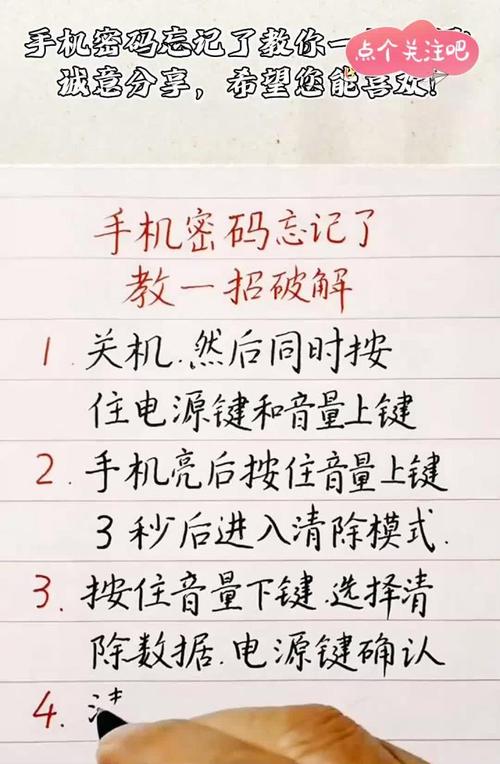 手机密码忘记了教你一
点个关注吧
诚意分享，希望您能喜欢！
手机密码忘记了
教一招破解
1. 关机.然后同时按
住电源键和音量上键
2. 手机亮后按住音量上键
3秒后进入清除模式.
3. 按住音量下键.选择清
除数据.电源键确认
4.